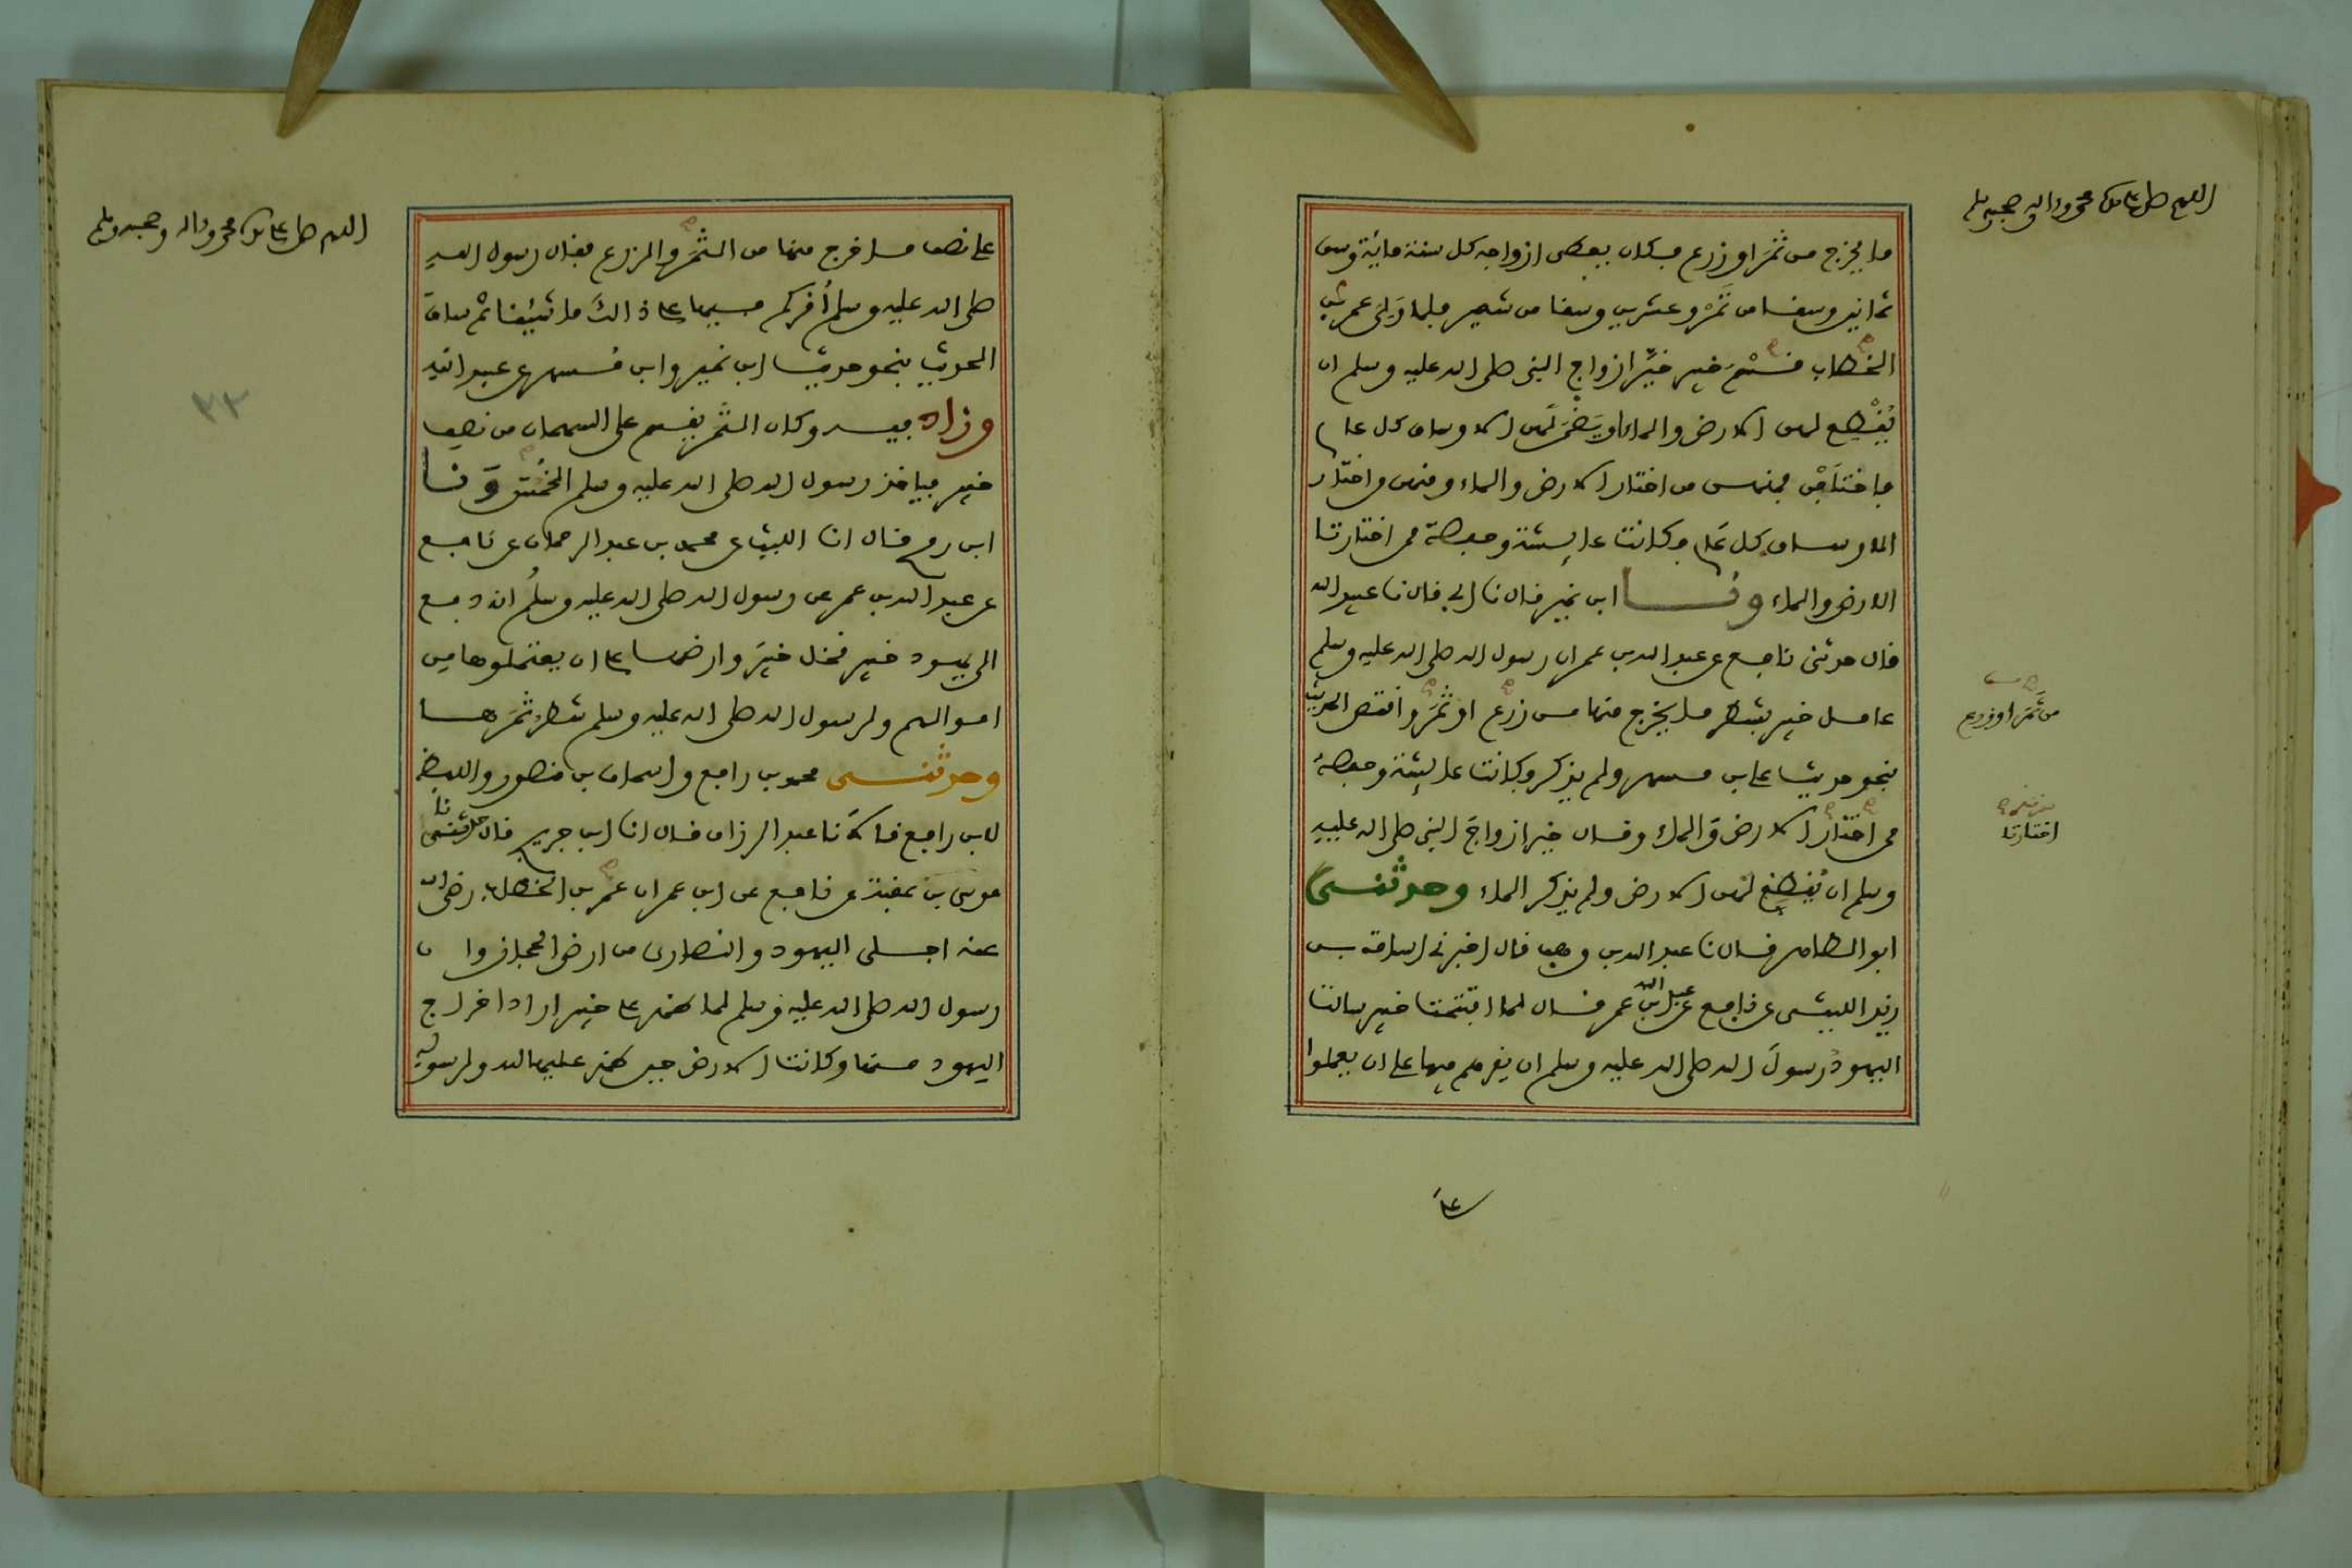 اللهم صل على سيدنا محمد واله وصحبه وسلم
ما يخرج من ثمر او زرع فكان يعطى ازواجه كل سنة مائة وسق
ثمانين وسقا من تمر وعشرين وسقا من شعير فلما ولى عمر بن
الخطاب قسم خيبر خير ازواج النبى صلى الله عليه وسلم ان
يقطع لهن الارض والماء او يضمن لهن الاوساق كل عام
فاختلفن فمنهن من اختار الارض والماء ومنهن من اختار
الاوساق كل عام وكانت عايشة وحفصة ممن اختارتا
الارض والماء ونا ابن نمير قال نا ابى قال نا عبيد الله
قال حدثنى نافع عن عبد الله بن عمر ان رسول الله صلى الله عليه وسلم
عامل خيبر بشطر ما يخرج منها من زرع او ثمر واقتص الحديث
من ثمر او زرع
بنحو حديث على بن مسهر ولم يذكر وكانت عايشة وحفصة
ممن اختار الارض والماء وقال خير ازواج النبى صلى الله عليه
اختارتا
وسلم ان يقطع لهن الارض ولم يذكر الماء وحدثنى
ابو الطاهر قال نا عبد الله بن وهب قال اخبرنى اسامة بن
زيد الليثى عن نافع عن عبد الله بن عمر قال لما افتتحت خيبر سالت
اليهود رسول الله صلى الله عليه وسلم ان يقرهم فيها على ان يعملوا
على
اللهم صل على سيدنا محمد واله وصحبه وسلم
على نصف ما خرج منها من الثمر والزرع فقال رسول الله
صلى الله عليه وسلم أقركم فيها على ذالك ما شئنا ثم ساق
الحديث بنحو حديث ابن نمير وابن مسهر عن عبيد الله
٢٣
وزاد فيه وكان الثمر يقسم على السهمان من نصف
خيبر فياخذ رسول الله صلى الله عليه وسلم الخمس ونا
ابن رمح قال انا الليث عن محمد بن عبد الرحمان عن نافع
عن عبد الله بن عمر عن رسول الله صلى الله عليه وسلم انه دفع
الى يهود خيبر نخل خيبر وارضها على ان يعتملوها من
اموالهم ولرسول الله صلى الله عليه وسلم شطر ثمرها
وحدثنى محمد بن رافع واسحاق بن منصور واللفظ
لابن رافع قالا نا عبد الرزاق قال انا ابن جريج قال حدثنى
موسى بن عقبة عن نافع عن ابن عمر ان عمر بن الخطاب رضى الله
عنه اجلى اليهود والنصارى من ارض الحجاز وان
رسول الله صلى الله عليه وسلم لما ظهر على خيبر اراد اخراج
اليهود منها وكانت الارض حين ظهر عليها لله ولرسوله